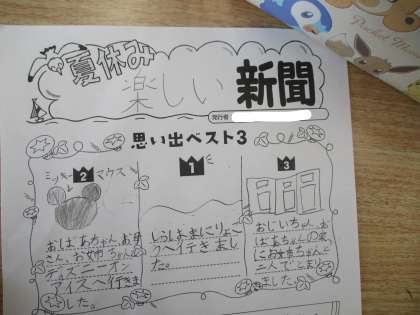 夏休み
楽しい
新聞
発行者
Pocket Mo
思い出ベスト3
2
ミッキーマウス
おばあちゃん、お母
さん、お姉ちゃんと
ディズニーオン
アイスへ行きま
した。
1
しらはまにりょこ
うへ行きまし
た。
3
おじいちゃん、お
ばあちゃんの家
にお姉ちゃんと
二人でとまり
ました。